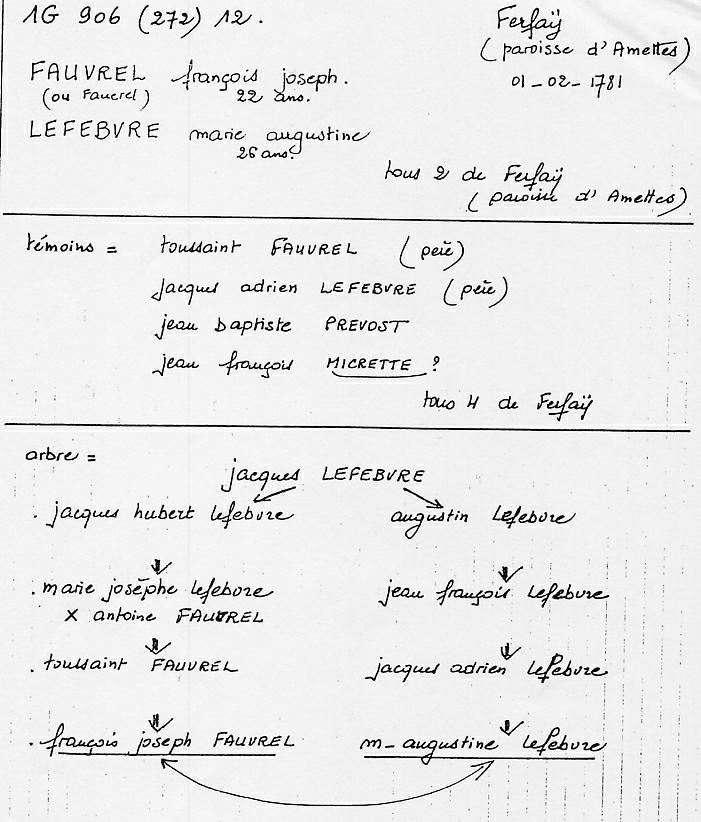 1G 906 (272) 12.
Ferfaÿ
(paroisse d'Amettes)
01-02-1781
FAUVREL françois joseph.
(ou Fauerel) 22 ans.
LEFEBVRE marie augustine
26 ans.
tous 2 de Ferfaÿ
(paroisse d'Amettes)
témoins = toussaint FAUVREL (père)
jacques adrien LEFEBVRE (père)
jean baptiste PREVOST
jean françois MICRETTE ?
tous 4 de Ferfaÿ
arbre =
jacques LEFEBVRE
. jacques hubert lefebvre augustin Lefebvre
. marie josèphe lefebvre jean françois Lefebvre
X antoine FAUVREL
. toussaint FAUVREL jacques adrien Lefebvre
. françois joseph FAUVREL m-augustine Lefebvre